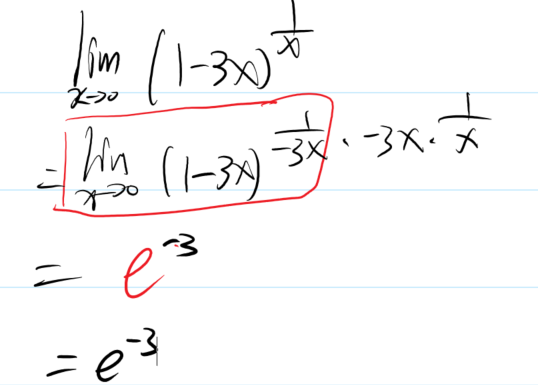 lim x→0 (1-3x)^(1/x)
= lim x→0 (1-3x)^(1/(-3x) · -3x · 1/x)
= e^(-3)
= e^(-3)